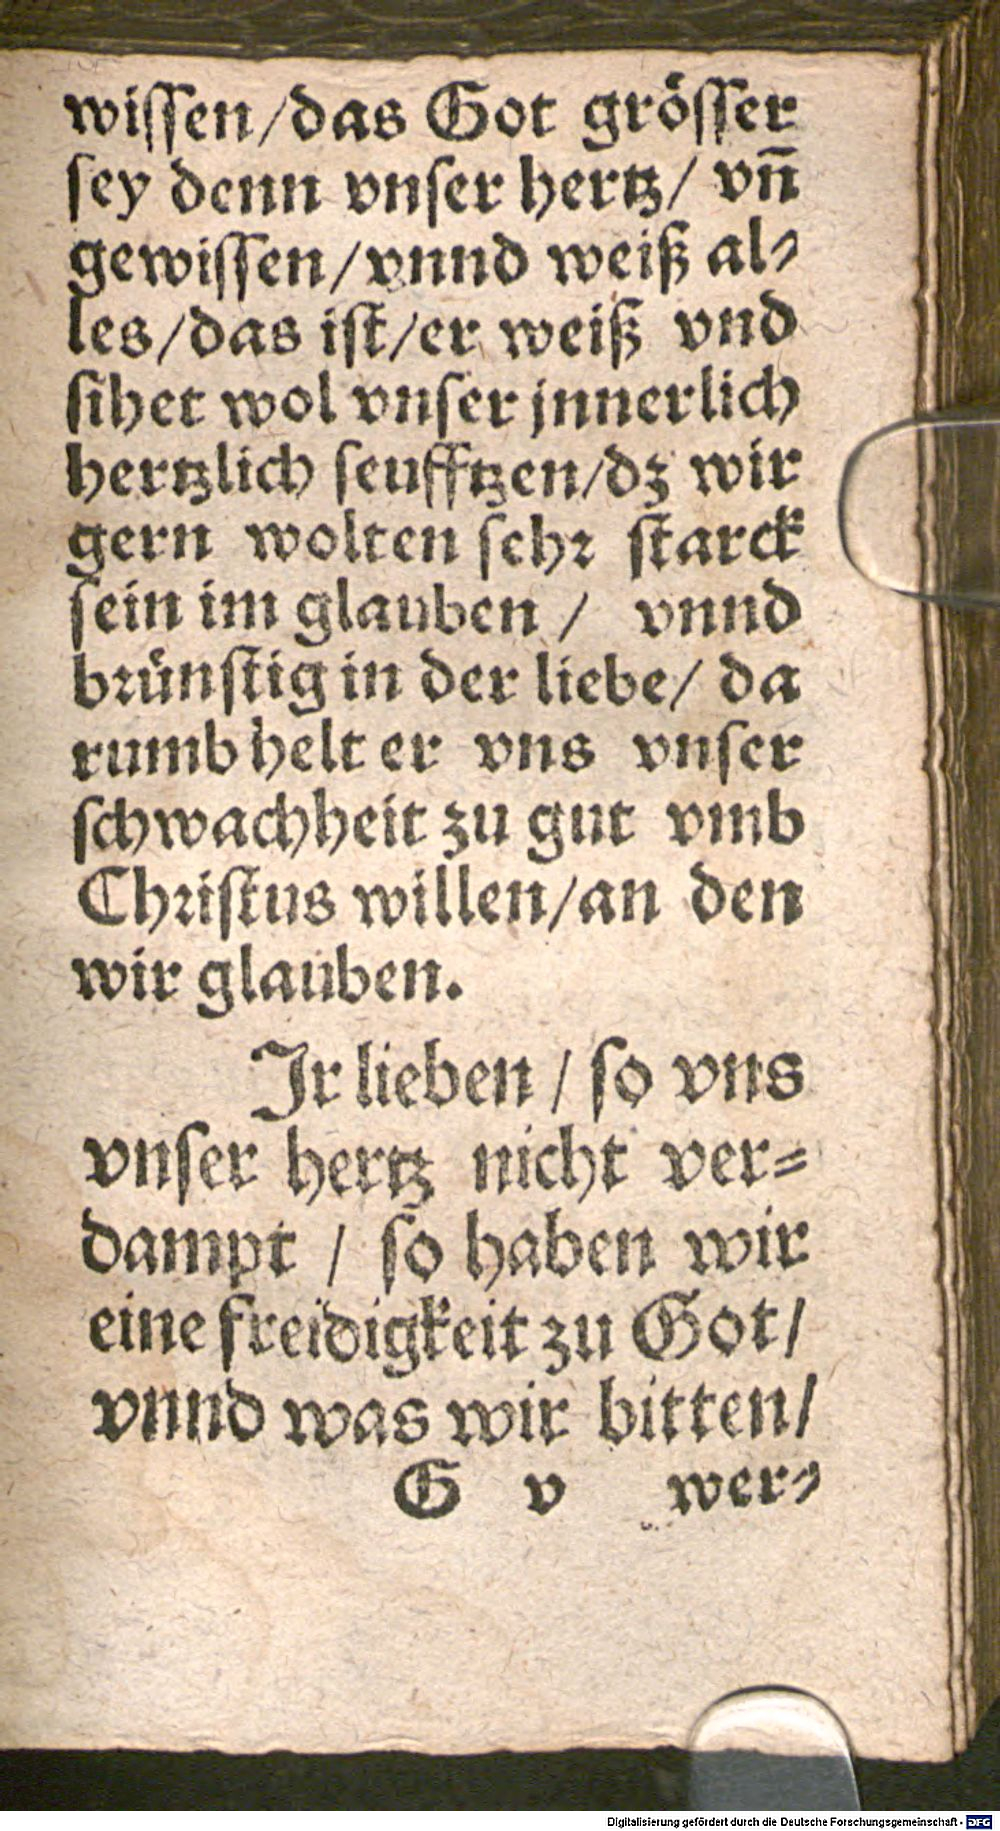 wiſſen/das Got gröſſer
ſey denn vnſer hertz/ vn̄
gewiſſen/vnnd weiß al-
les/das iſt/er weiß vnd
ſihet wol vnſer jnnerlich
hertzlich ſeufftzen/dz wir
gern wolten ſehr ſtarck
ſein im glauben / vnnd
brünſtig in der liebe/ da
rumb helt er vns vnſer
ſchwachheit zu gut vmb
Chriſtus willen/an den
wir glauben.
Jr lieben / ſo vns
vnſer hertz nicht ver-
dampt / ſo haben wir
eine freidigkeit zu Got/
vnnd was wir bitten/
G v wer-
Digitalisierung gefördert durch die Deutsche Forschungsgemeinschaft - DFG